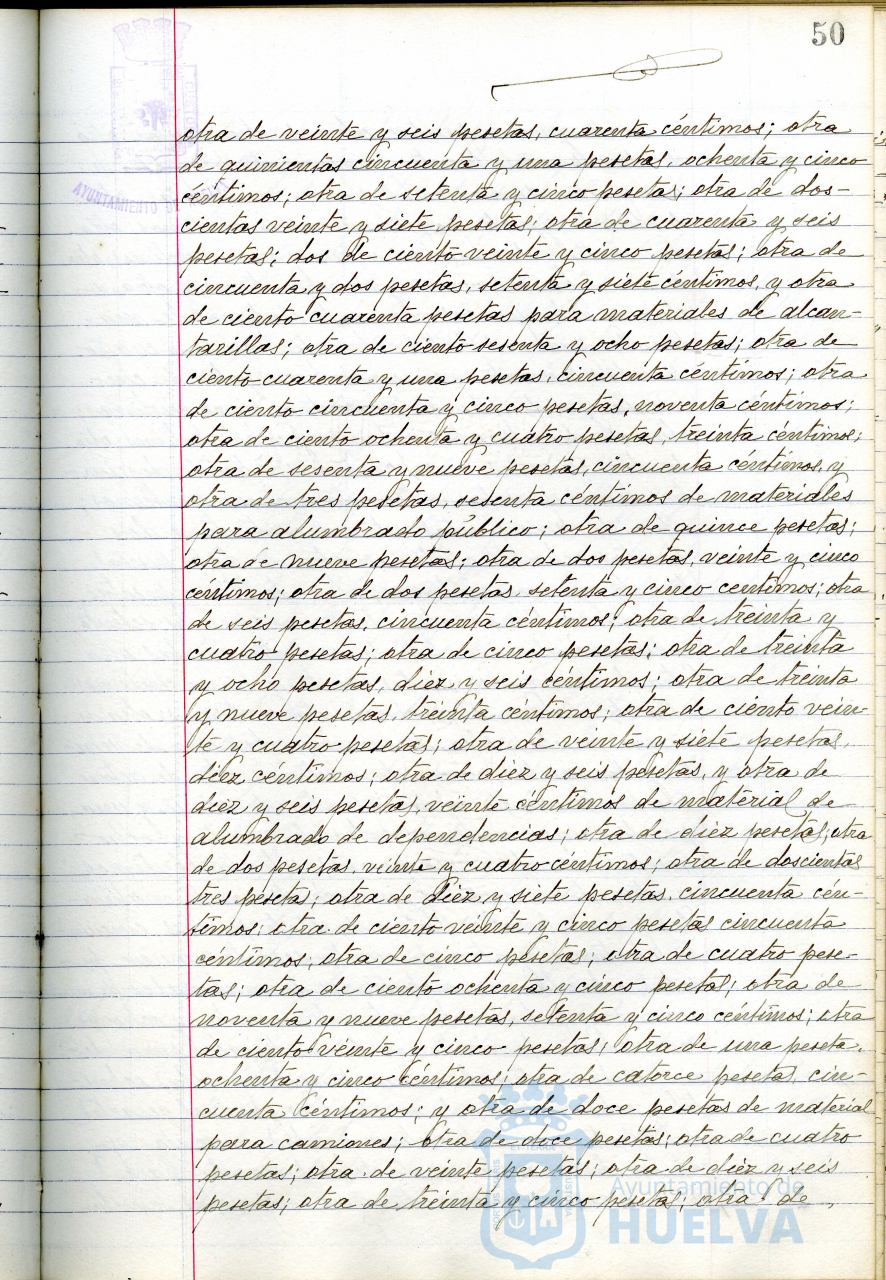 50
otra de veinte y seis pesetas, cuarenta céntimos; otra
de quinientas cincuenta y una pesetas, ochenta y cinco
céntimos; otra de setenta y cinco pesetas; otra de dos-
cientas veinte y siete pesetas; otra de cuarenta y seis
pesetas; dos de ciento veinte y cinco pesetas; otra de
cincuenta y dos pesetas, setenta y siete céntimos, y otra
de ciento cuarenta pesetas para materiales de alcan-
tarillas; otra de ciento sesenta y ocho pesetas; otra de
ciento cuarenta y una pesetas, cincuenta céntimos; otra
de ciento cincuenta y cinco pesetas, noventa céntimos;
otra de ciento ochenta y cuatro pesetas, treinta céntimos;
otra de sesenta y nueve pesetas, cincuenta céntimos, y
otra de tres pesetas, sesenta céntimos de materiales
para alumbrado público; otra de quince pesetas;
otra de nueve pesetas; otra de dos pesetas, veinte y cinco
céntimos; otra de dos pesetas, setenta y cinco centimos; otra
de seis pesetas, cincuenta céntimos; otra de treinta y
cuatro pesetas; otra de cinco pesetas; otra de treinta
y ocho pesetas, diez y seis céntimos; otra de treinta
y nueve pesetas, treinta céntimos; otra de ciento vein-
te y cuatro pesetas; otra de veinte y siete pesetas,
diez céntimos; otra de diez y seis pesetas, y otra de
diez y seis pesetas, veinte céntimos de material de
alumbrado de dependencias; otra de diez pesetas; otra
de dos pesetas, veinte y cuatro céntimos; otra de doscientas
tres pesetas; otra de diez y siete pesetas, cincuenta cén-
timos; otra de ciento veinte y cinco pesetas cincuenta
céntimos; otra de cinco pesetas; otra de cuatro pese-
tas; otra de ciento ochenta y cinco pesetas; otra de
noventa y nueve pesetas, setenta y cinco céntimos; otra
de ciento veinte y cinco pesetas; otra de una peseta,
ochenta y cinco céntimos; otra de catorce pesetas, cin-
cuenta céntimos; y otra de doce pesetas de material
para camiones; otra de doce pesetas; otra de cuatro
pesetas; otra de veinte pesetas; otra de diez y seis
pesetas; otra de treinta y cinco pesetas; otra de
AYUNTAMIENTO DE
Ayuntamiento de
HUELVA